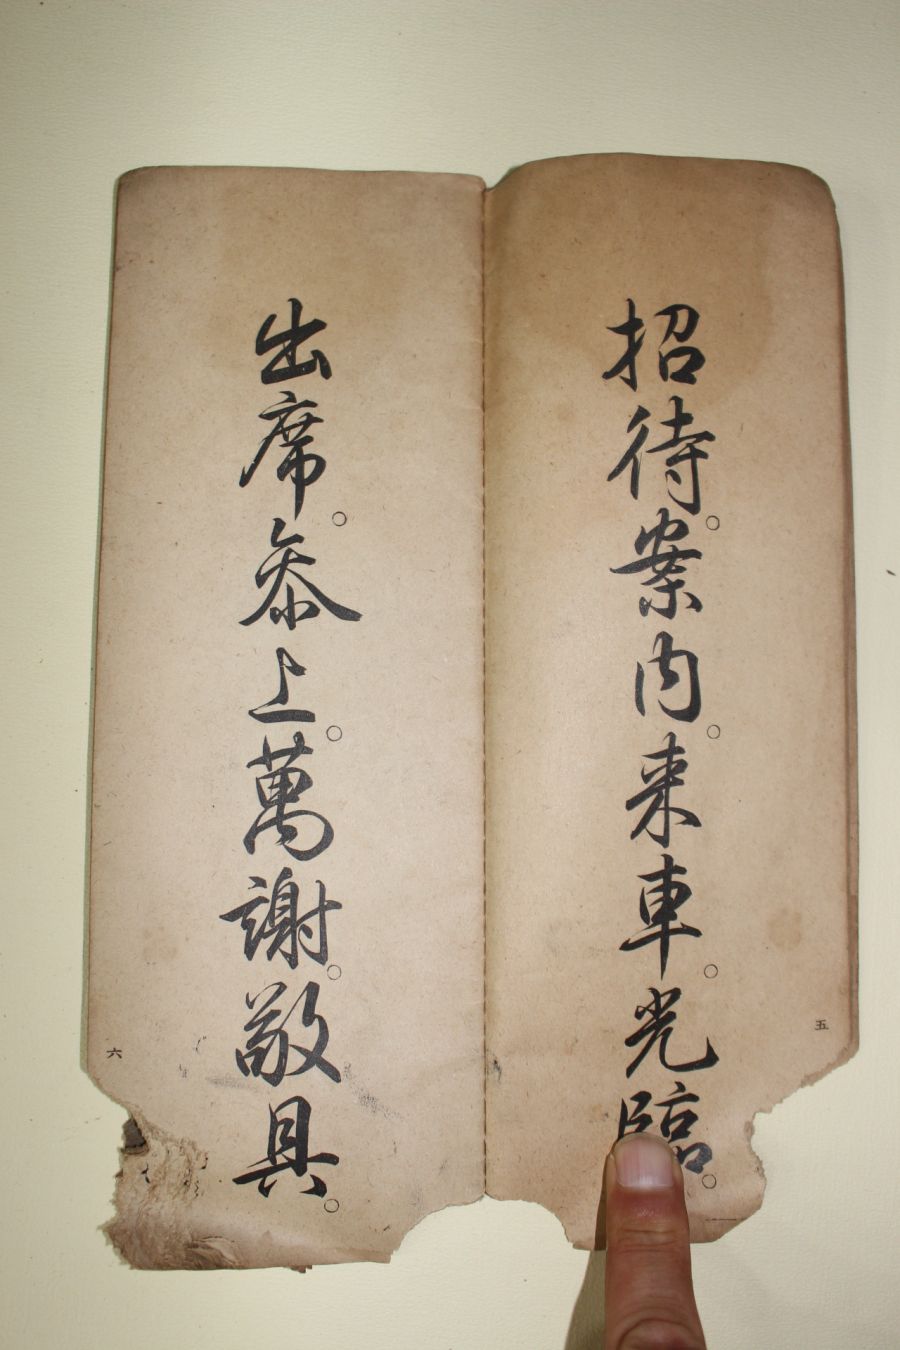 招待。案内。来車。光臨。
五
出席。参上。萬謝。敬具。
六